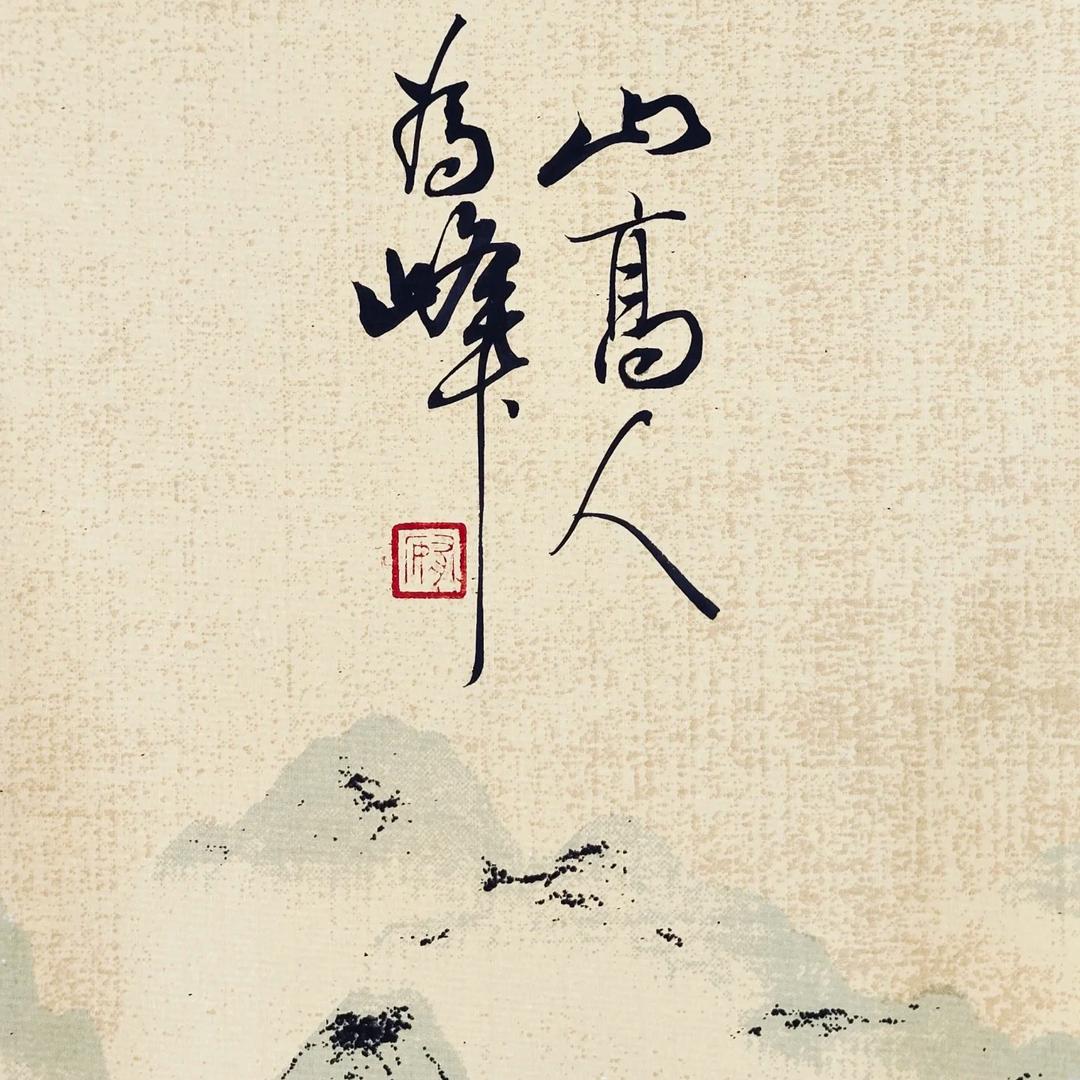 山高人
為峰